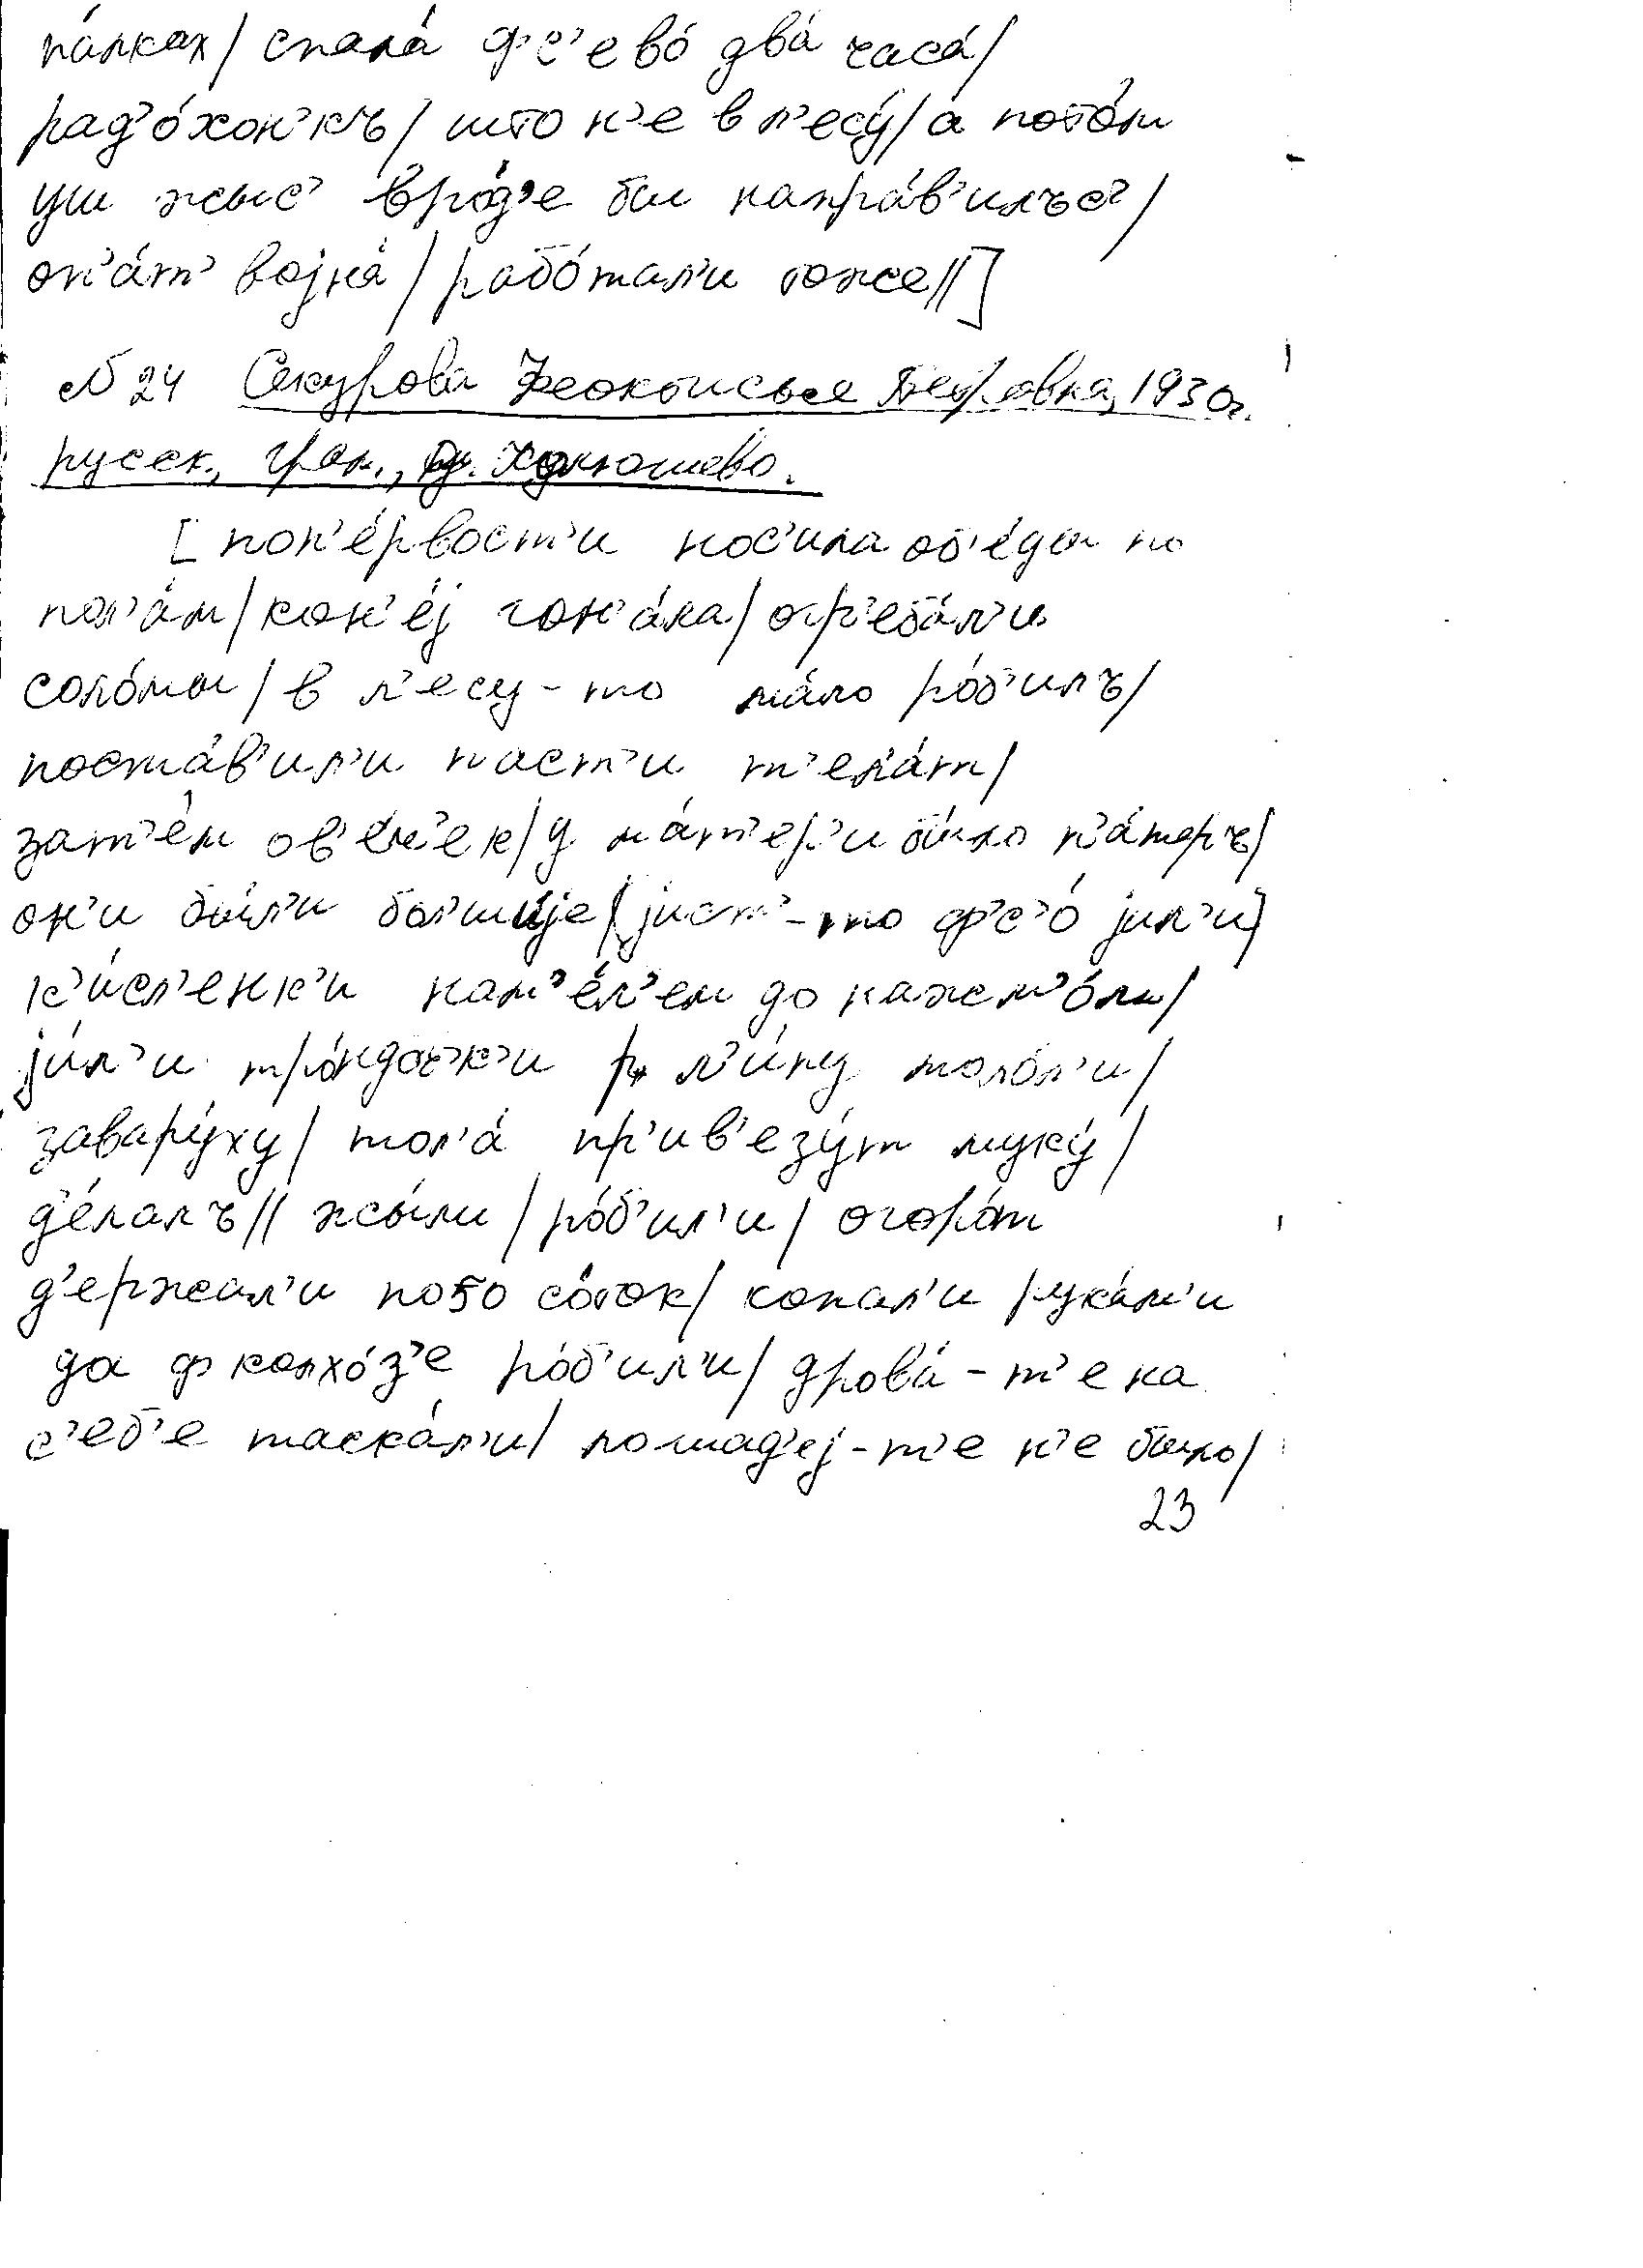 па́лках/ спала́ ф'с'ево́ два́ часа́/
рад'о́хон'къ/ што н'е в л'есу́/ а́ пото́м
уш жыс' вро́д'е бы напра́в'илъс'/
оп'а́т' војна́/ рабо́тал'и тоже//]
№ 24 Секурова Петровна, 1930г.
русск., грам., д.
[поп'е́рвост'и нос'ила об'е́ды по
пол'а́м/ кон'е́ј гон'а́ла/ огр'еба́л'и
соло́мы/ в л'есу-то ма́ло ро́б'илъ/
поста́в'ил'и паст'и т'ел'а́т/
зат'е́м ов'е́ч'ек/ у ма́т'ер'и бы́ло п'а́теръ/
он'и бы́л'и бол'шы́је/ јист'-то ф'с'о́ јил'и/
к'и́сл'енк'и нам'е́л'ем до пажм'о́м/
ји́л'и тро́ндоч'к'и л'и́пу моло́л'и/
завару́ху/ мол'а́ пр'ив'езу́т муку́/
д'е́лалъ// жы́ли/ ро́б'ил'и/ огоро́т
д'ержал'и по 50 со́ток/ копал'и рука́м'и
да ф колхо́з'е ро́б'ил'и/ дрова́-т'е на
с'еб'е таска́л'и/ лошад'еј-т'е н'е было/
23